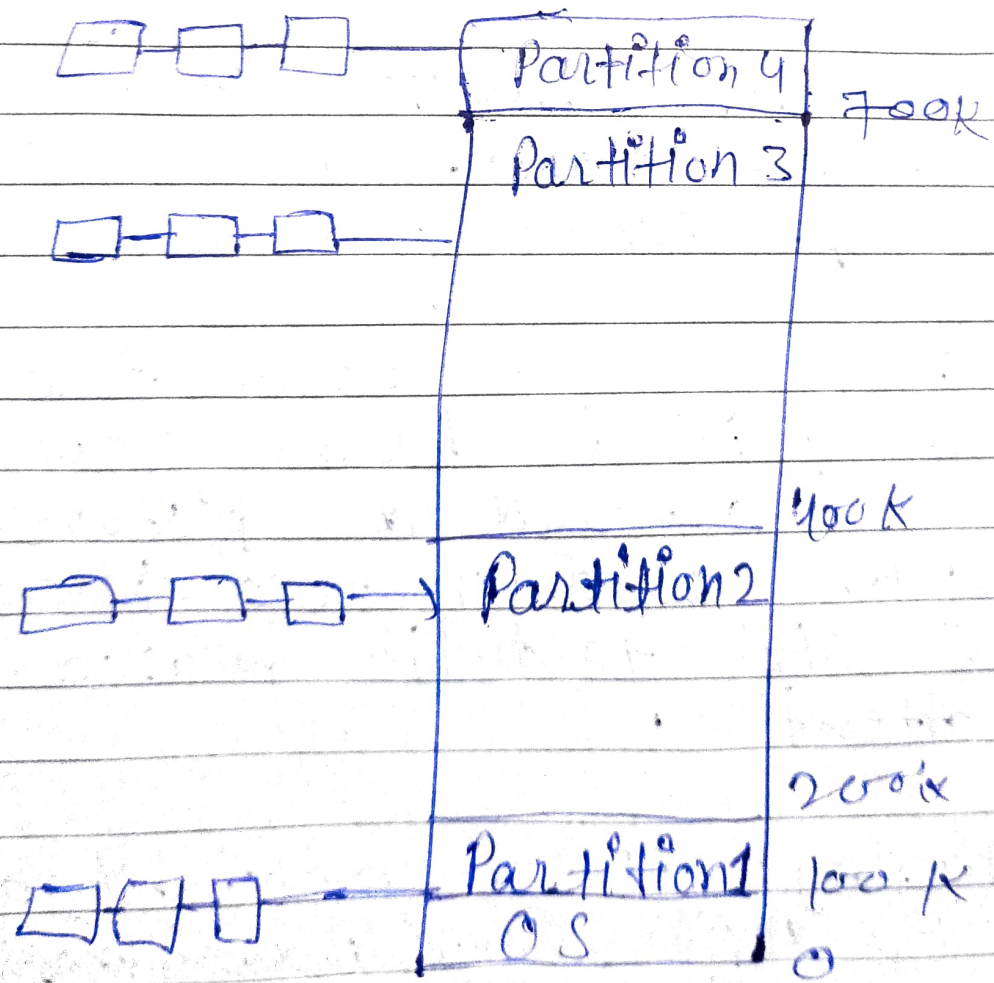 Partition 4
700K
Partition 3
400K
Partition 2
200K
Partition 1
100K
OS
0